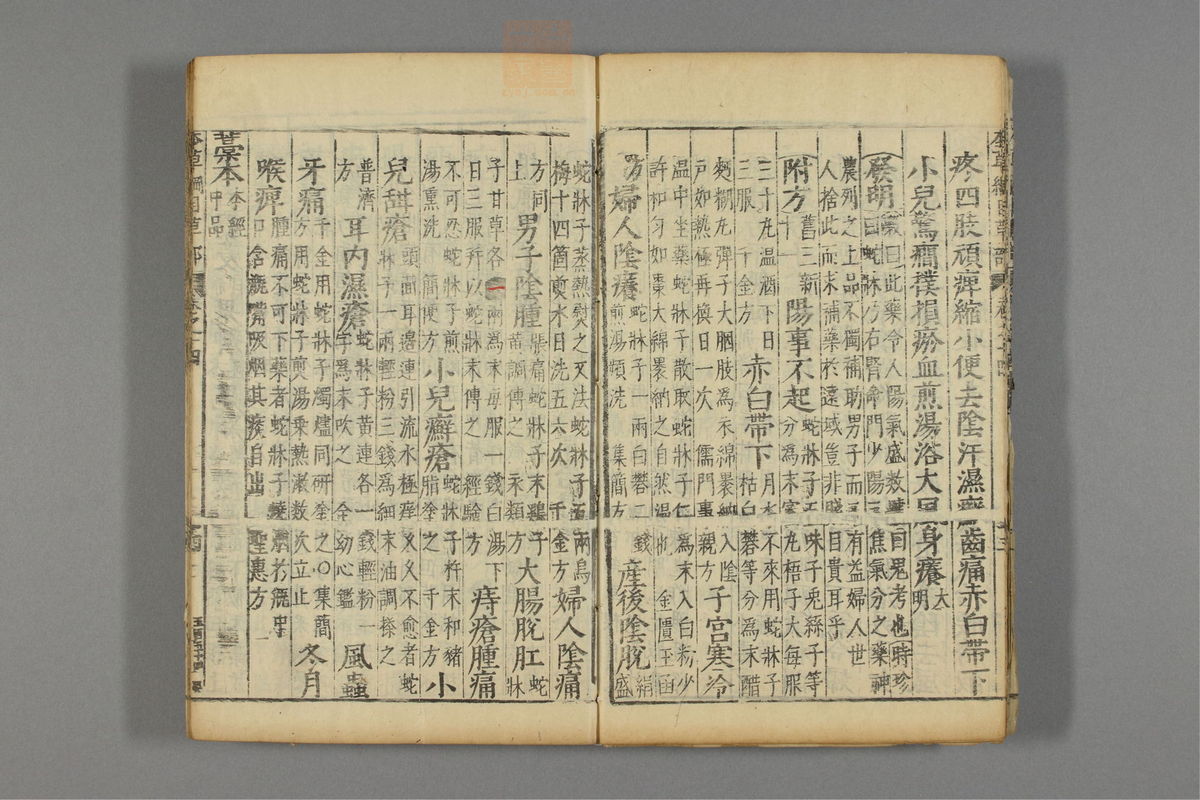 本草綱目草部 卷之十四
疼四肢頑痺縮小便去陰汗濕癬齒痛赤白帶下
小兒驚癇撲損瘀血煎湯浴大風身癢大明
發明 斆曰此藥令人陽氣盛數號曰鬼考也時珍
曰蛇牀乃右腎命門少陽三焦氣分之藥神
農列之上品不獨補助男子而又有益婦人世
人捨此而求補藥於遠域豈非賤目貴耳乎
附方 舊三新十 陽事不起 蛇牀子五味子兎絲子等
分爲末蜜丸梧子大每服
三十丸溫酒下日
三服 千金方 赤白帶下 月水不來用蛇牀子
枯白礬等分爲末醋
麪糊丸彈子大胭肢爲衣綿裹納入陰
戶如熱極再換日一次 儒門事親方 子宮寒冷
溫中坐藥蛇牀子散取蛇牀子仁爲末入白粉少
許和勻如棗大綿裹納之自然溫也 金匱玉函
方 婦人陰癢 蛇牀子一兩白礬二錢
煎湯頻洗 集簡方 產後陰脫 絹盛
蛇牀子蒸熱熨之又法蛇牀子五兩烏
梅十四箇煎水日洗五六次 千金方 婦人陰痛
方同上 男子陰腫 脹痛蛇牀子末雞子
黃調傅之 永類方 大腸脫肛 蛇牀
子甘草各一兩爲末每服一錢白湯下
日三服幷以蛇牀末傅之 經驗方 痔瘡腫痛
不可忍蛇牀子煎
湯熏洗 簡便方 小兒癬瘡 蛇牀子杵末和豬
脂塗之 千金方 小
兒甜瘡 頭面耳邊連引流水極痒久久不愈者蛇
牀子一兩輕粉三錢爲細末油調搽之
普濟方 耳內濕瘡 蛇牀子黃連各一錢輕粉一
字爲末吹之 全幼心鑑 風蟲
牙痛 千金用蛇牀子燭燼同研塗之○集簡
方用蛇牀子煎湯乘熱漱數次立止 冬月
喉痺 腫痛不可下藥者蛇牀子燒烟於瓶中
口含瓶嘴吸烟其痰自出 聖惠方
藁本 本經中品
本草綱目草部 卷之十四